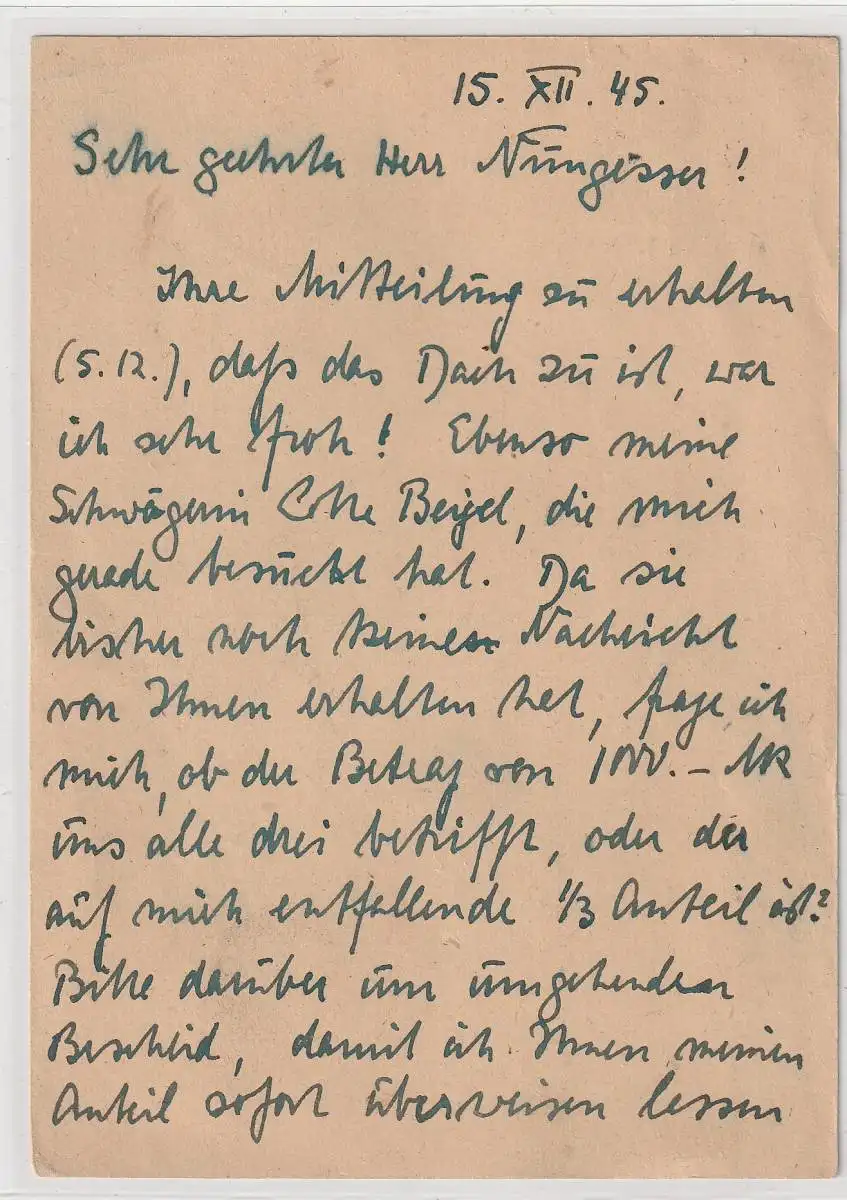 15. XII. 45.
Sehr geehrter Herr Nüngesser!
Ihre Mitteilung zu erhalten
(5.12.), daß das Dach zu ist, war
ich sehr froh! Ebenso meine
Schwägerin Lotte Beigel, die mich
gerade besucht hat. Da sie
bisher noch keine Nachricht
von Ihnen erhalten hat, frage ich
mich, ob der Betrag von 1000.– Mk
uns alle drei betrifft, oder der
auf mich entfallende 1/3 Anteil ist?
Bitte darüber um umgehenden
Bescheid, damit ich Ihnen meinen
Anteil sofort überweisen lassen